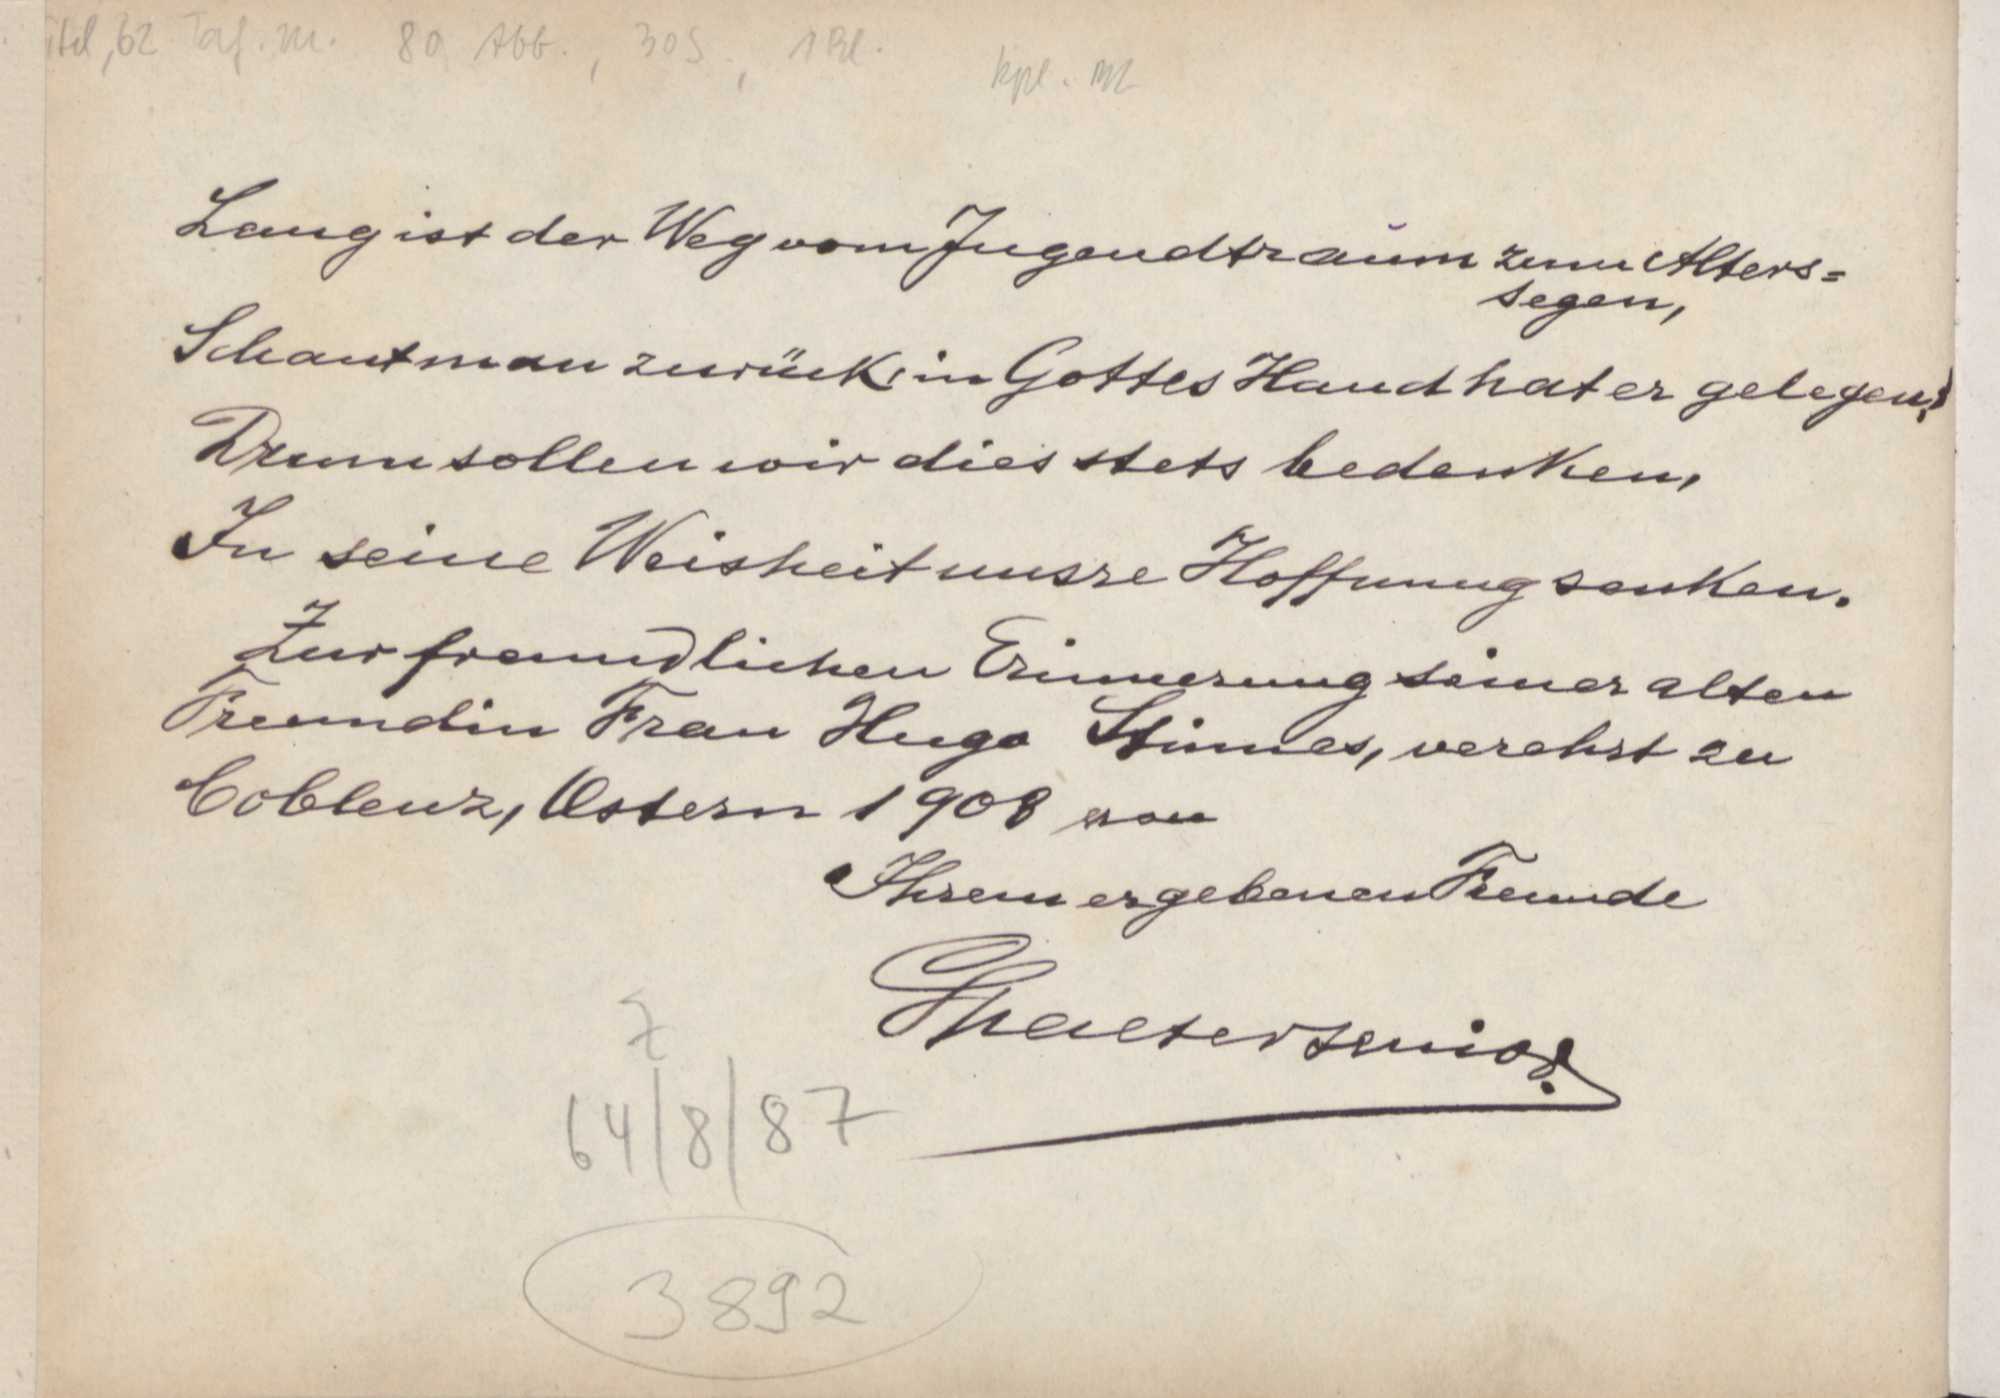 Titel, 62 Taf. m. 80 Abb., 30 S., 1 Bl.
kpl.
Lang ist der Weg vom Jugendtraum zum Alters=
segen,
Schaut man zurück, in Gottes Hand hat er gelegen!
Drum sollen wir dies stets bedenken,
In seine Weisheit unsre Hoffnung senken.
Zur freundlichen Erinnerung seiner alten
Freundin Frau Hugo Stinnes, verehrt zu
Coblenz, Ostern 1908 von
Ihrem ergebenen Freunde
Spaeter senior.
Z
64/8/87
3892